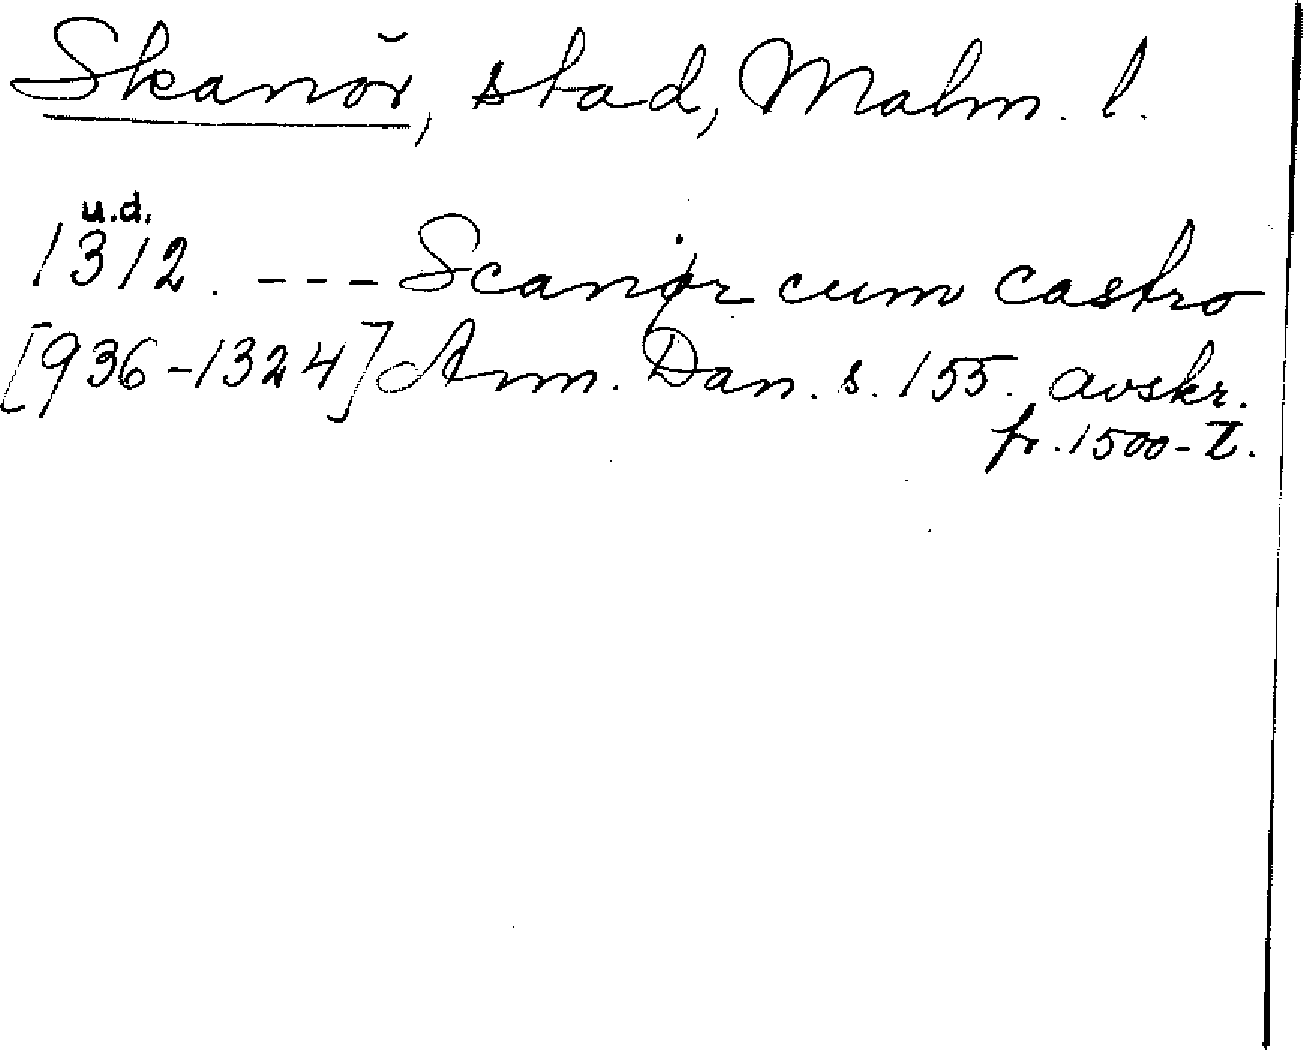 Skanör, stad, Malm. l.
u.d.
1312. --- Scanør cum castro
[936-1324] Ann. Dan. s. 155. avskr.
fr. 1500-t.